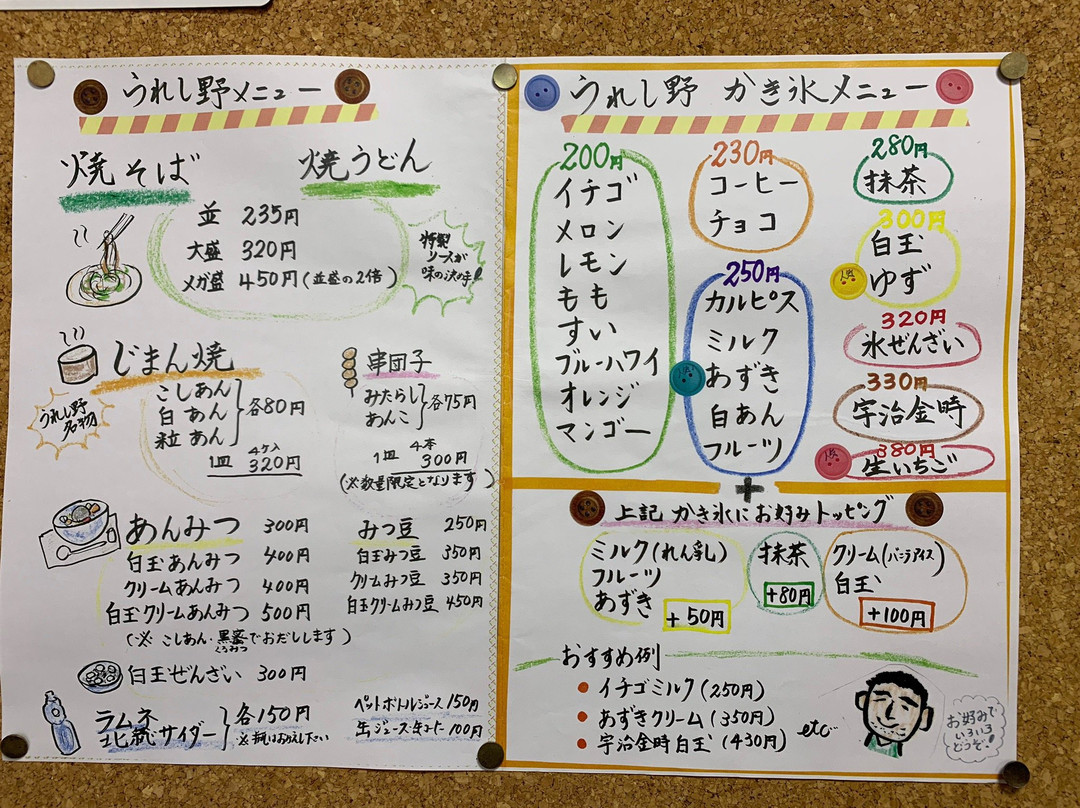 うれし野メニュー
焼そば
焼うどん
並 235円
大盛 320円
メガ盛 450円(並盛の2倍)
特製
ソースが
味の決め手!
じまん焼
うれし野
名物
こしあん
白あん
粒あん
各80円
4ケ入
1皿 320円
串団子
みたらし
あんこ
各75円
4本
1皿 300円
(※数量限定となります)
あんみつ 300円
白玉あんみつ 400円
クリームあんみつ 400円
白玉クリームあんみつ 500円
(※ こしあん・黒蜜でおだしします)
くろみつ
みつ豆 250円
白玉みつ豆 350円
クリームみつ豆 350円
白玉クリームみつ豆 450円
白玉ぜんざい 300円
ラムネ
サイダー
各150円
ペットボトルジュース 150円
缶ジュース・缶コーヒー 100円
うれし野 かき氷メニュー
200円
イチゴ
メロン
レモン
もも
すい
ブルーハワイ
オレンジ
マンゴー
230円
コーヒー
チョコ
250円
カルピス
ミルク
あずき
白あん
フルーツ
280円
抹茶
300円
白玉
ゆず
人気
320円
氷ぜんざい
330円
宇治金時
380円
生いちご
人気
+
上記 かき氷にお好みトッピング
ミルク(れん乳)
フルーツ
あずき
+50円
抹茶
+80円
クリーム(バニラアイス)
白玉
+100円
おすすめ例
● イチゴミルク(250円)
● あずきクリーム(350円)
● 宇治金時白玉(430円)
etc
お好みで
いろいろ
どうぞ!